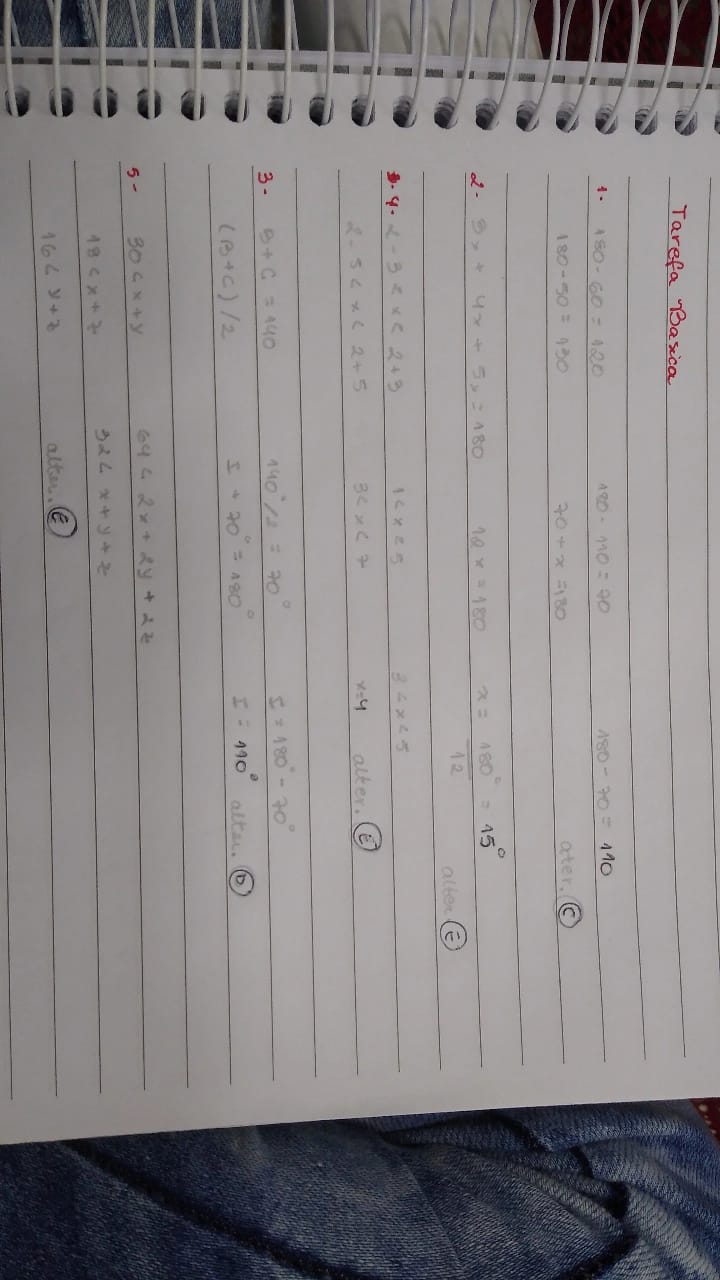 Tarefa Basica
1. 180 - 60 = 120 180 - 110 = 70 180 - 70 = 110
180 - 50 = 130 70 + x = 180 ater. (C)
2. 3x + 4x + 5x = 180 12x = 180 x = 180° = 15°
12
alter (E)
4. 2 - 3 < x < 2 + 3 1 < x < 5 3 < x < 5
2 - 5 < x < 2 + 5 3 < x < 7 x = 4 alter. (E)
3. B + C = 140 140°/2 = 70° I = 180° - 70°
(B + C) /2 I + 70° = 180° I = 110° alter. (D)
5- 30 < x + y 64 < 2x + 2y + 2z
18 < x + z 32 < x + y + z
16 < y + z alter. (E)